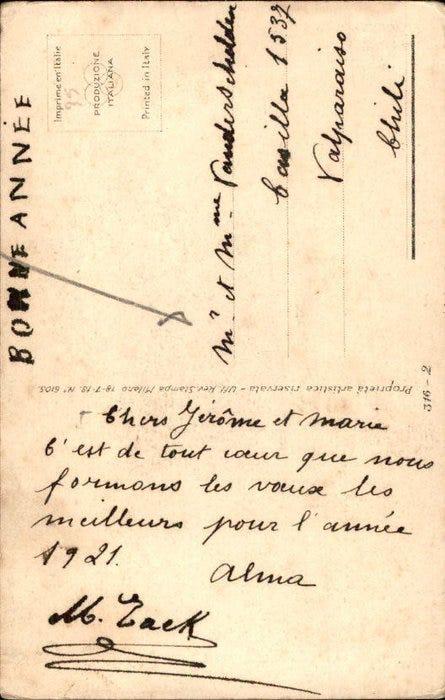 BONNE ANNÉE
Imprimé en Italie
PRODUZIONE
ITALIANA
Printed in Italy
Mr et Mme
Casilla 1537
Valparaiso
Chili
Proprietà artistica riservata - Uff. Rev. Stampa Milano 18-7-19. N° 6105
316-2
Chers Jérôme et Marie
C'est de tout cœur que nous
formons les vœux les
meilleurs pour l'année
1921.
Alma
M. Zack